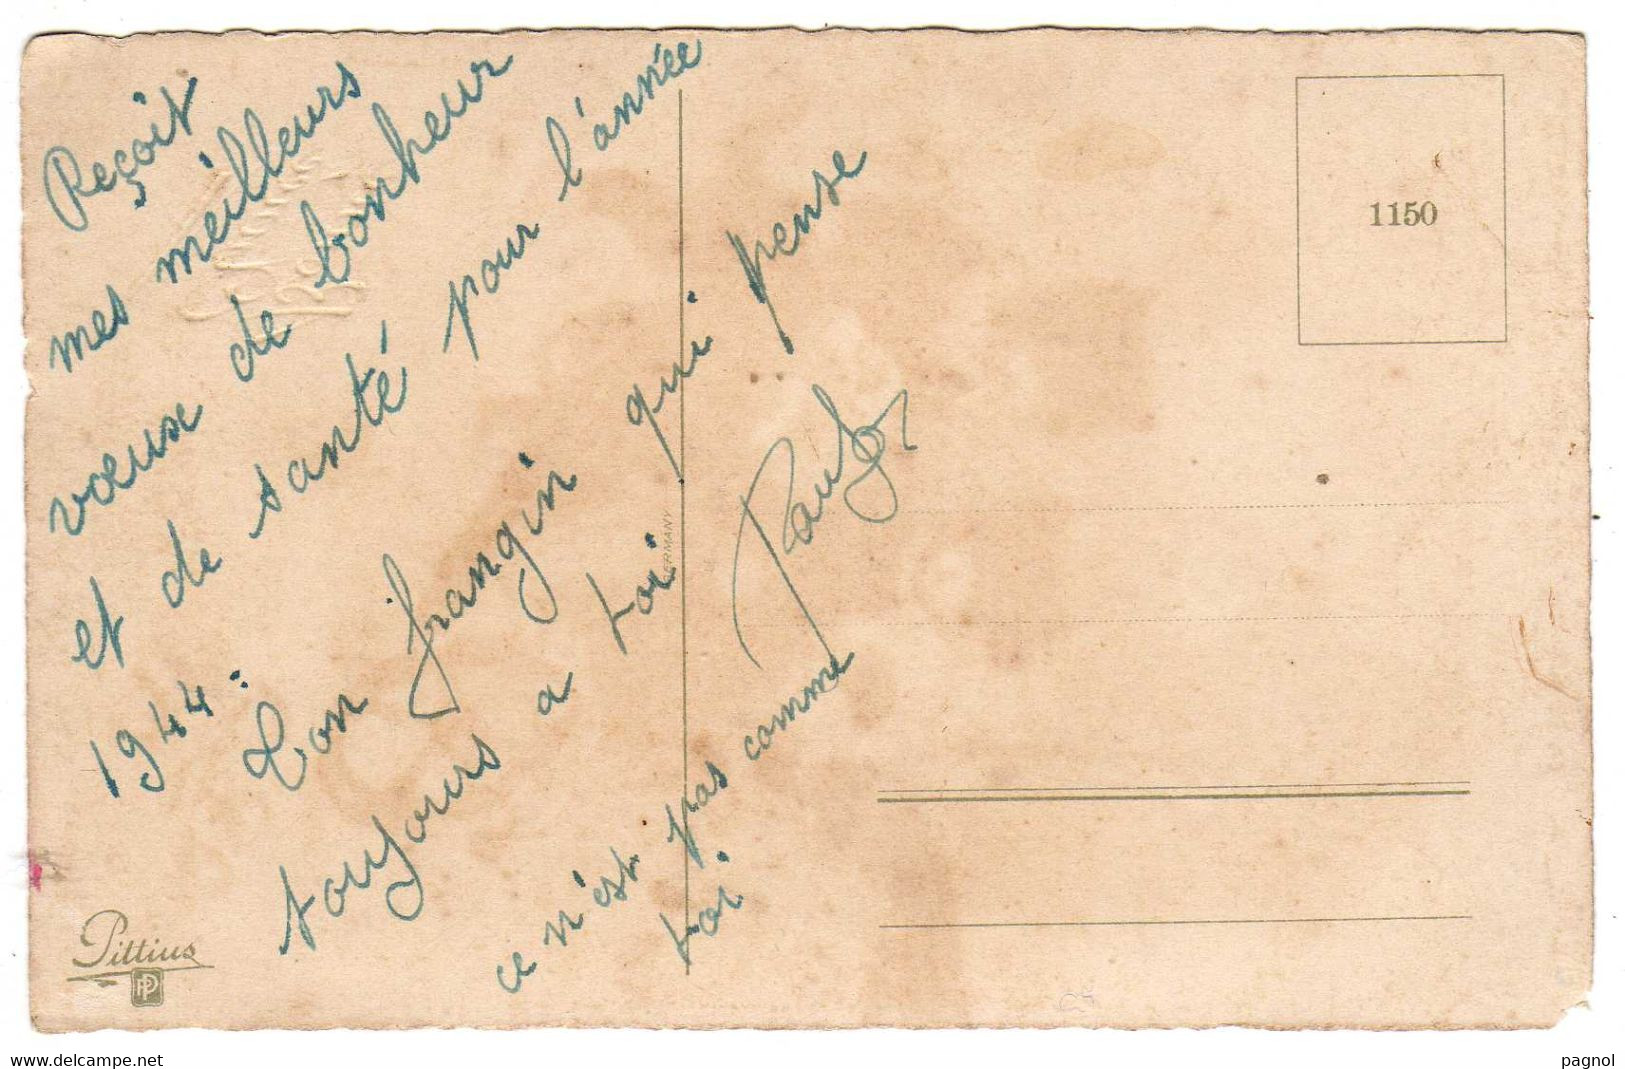 Reçoit
mes meilleurs
vœux de bonheur
et de santé pour l'année
1944.
Ton frangin qui pense
toujours a toi
ce n'est pas comme
toi
1150
ERMANY
Pittius
PP
www.delcampe.net
pagnol